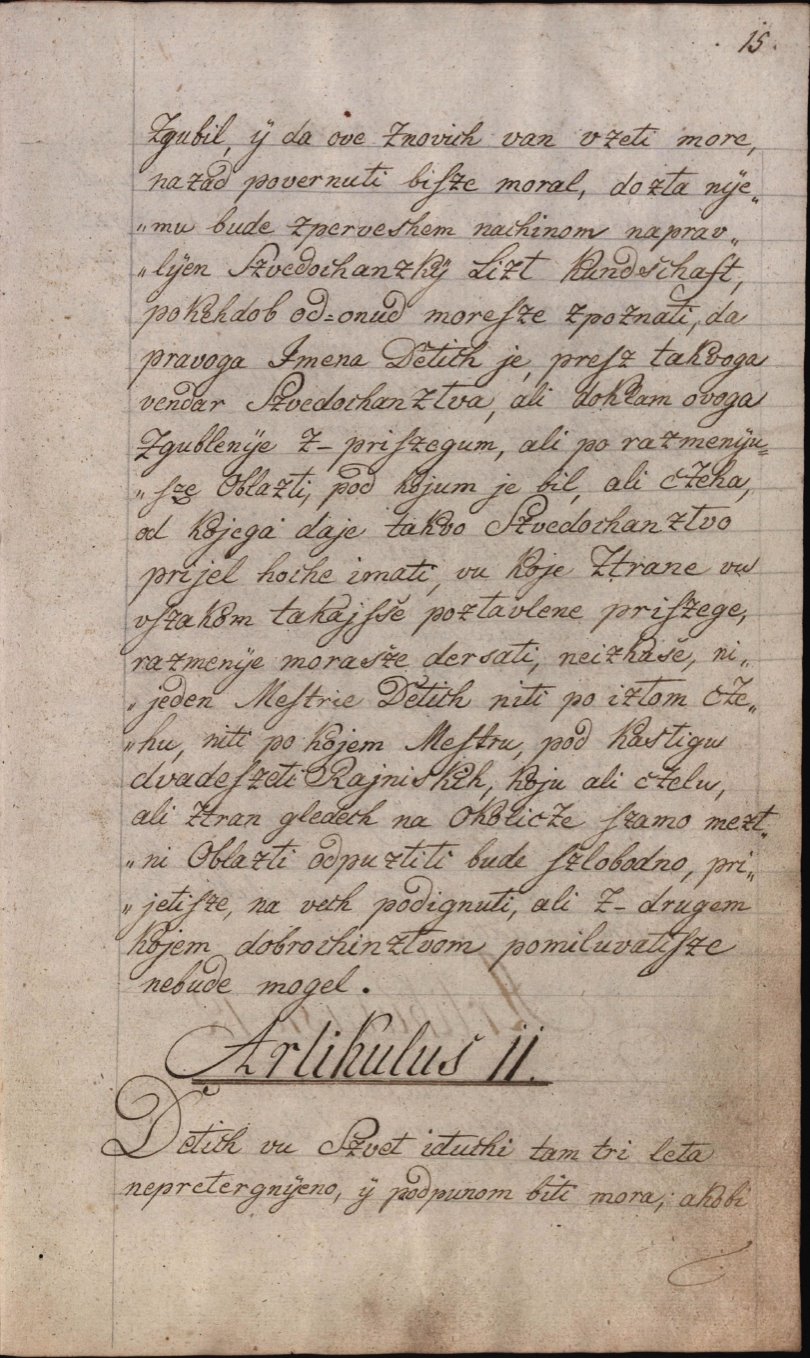 15.
Zgubil, ÿ da ove znovich van vzeti more,
nazad povernuti bisze moral, dozta nÿe„
„mu bude zperveshem nachinom naprav„
„lÿen Szvedochanzkÿ Lizt Kundschaft,
pokihdob od=onud moresze zpoznati, da
pravoga Imena Detich je, presz takvoga
vendar Szvedochanztva, ali doklam ovoga
Zgublenÿe Z– priszegum, ali po razmenÿu=
„sze Oblazti, pod kojum je bil, ali czeha,
od kojega daje takvo Szvedochanztvo
prijel hoche imati, vu koje Ztrane vu
vszakom takajsse poztavlene priszege,
razmenÿe morasze dersati, neizkase, ni„
„jeden Mestrie Detich niti po iztom cze„
„hu, niti po kojem Mestru, pod kastigu
dvadeszeti Rajniskih, koju ali czelu,
ali ztran gledech na Okolicze szamo mezt„
„ni Oblazti odpuztiti bude szlobodno, pri„
„jetisze, na vech podignuti, ali Z– drugem
kojem dobrochinztvom pomiluvatisze
nebude mogel.
Artikulus 11.
Detich vu Szvet iduchi tam tri leta
nepretergnÿeno, ÿ podpunom biti mora, akobi